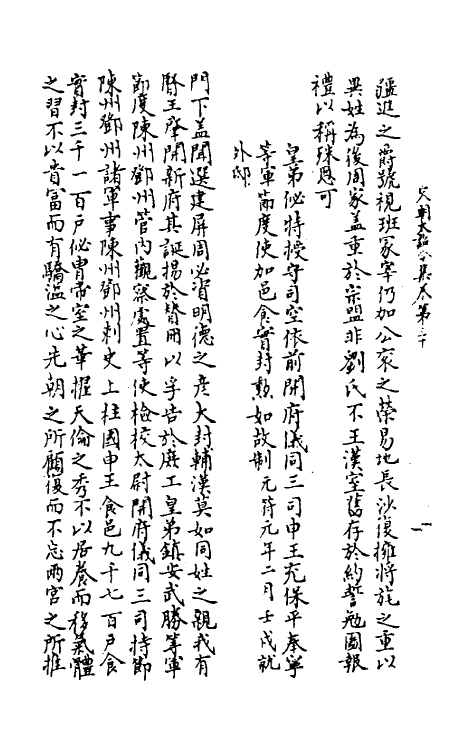 宋朝大詔令集卷第三十
疆進之爵號視班冢宰仍加公衮之榮易地長沙復擁將旄之重以
異姓為後周家蓋重於宗盟非劉氏不王漢室舊存於約誓勉圖報
禮以稱殊恩可
皇弟佖特授守司空依前開府儀同三司申王充保平奉寧
等軍節度使加邑食實封勲如故制元符元年二月壬戌就
外邸
門下蓋聞選建屏周必資明德之彦大封輔漢莫如同姓之親我有
賢王肇開新府其誕揚於贊冊以孚告於庶工皇弟鎮安武勝等軍
節度陳州鄧州管内觀察處置等使檢校太尉開府儀同三司持節
陳州鄧州諸軍事陳州鄧州刺史上柱國申王食邑九千七百戶食
實封三千一百戶佖胄帝室之華握天倫之秀不以居養而移氣體
之習不以貴富而有驕溢之心先朝之所顧復而不忘兩宫之所推
一